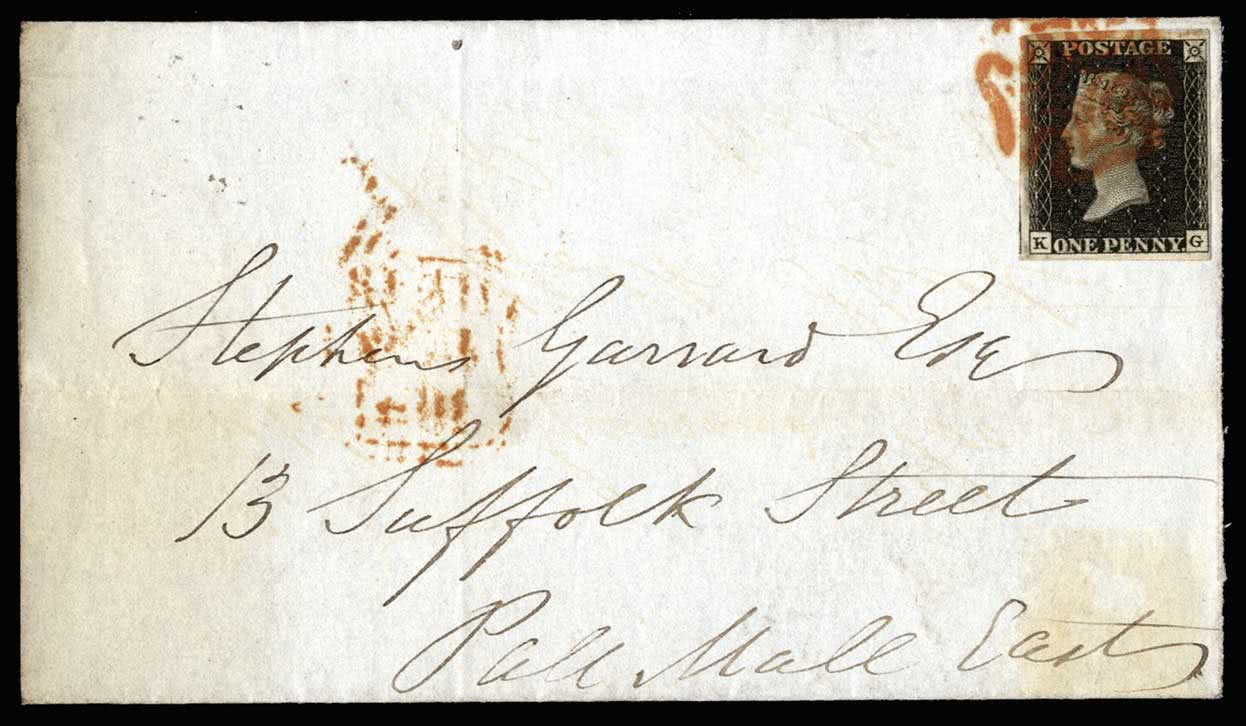 POSTAGE
K ONE PENNY G
Stephen Garrard Esq
13 Suffolk Street
Pall Mall East